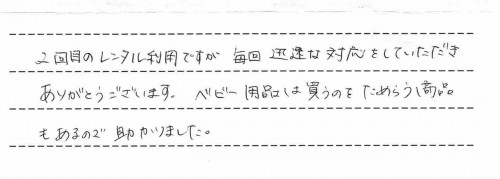 2回目のレンタル利用ですが 毎回 迅速な対応をしていただき
ありがとうございます。 ベビー用品は買うのをためらう商品
もあるので 助かりました。